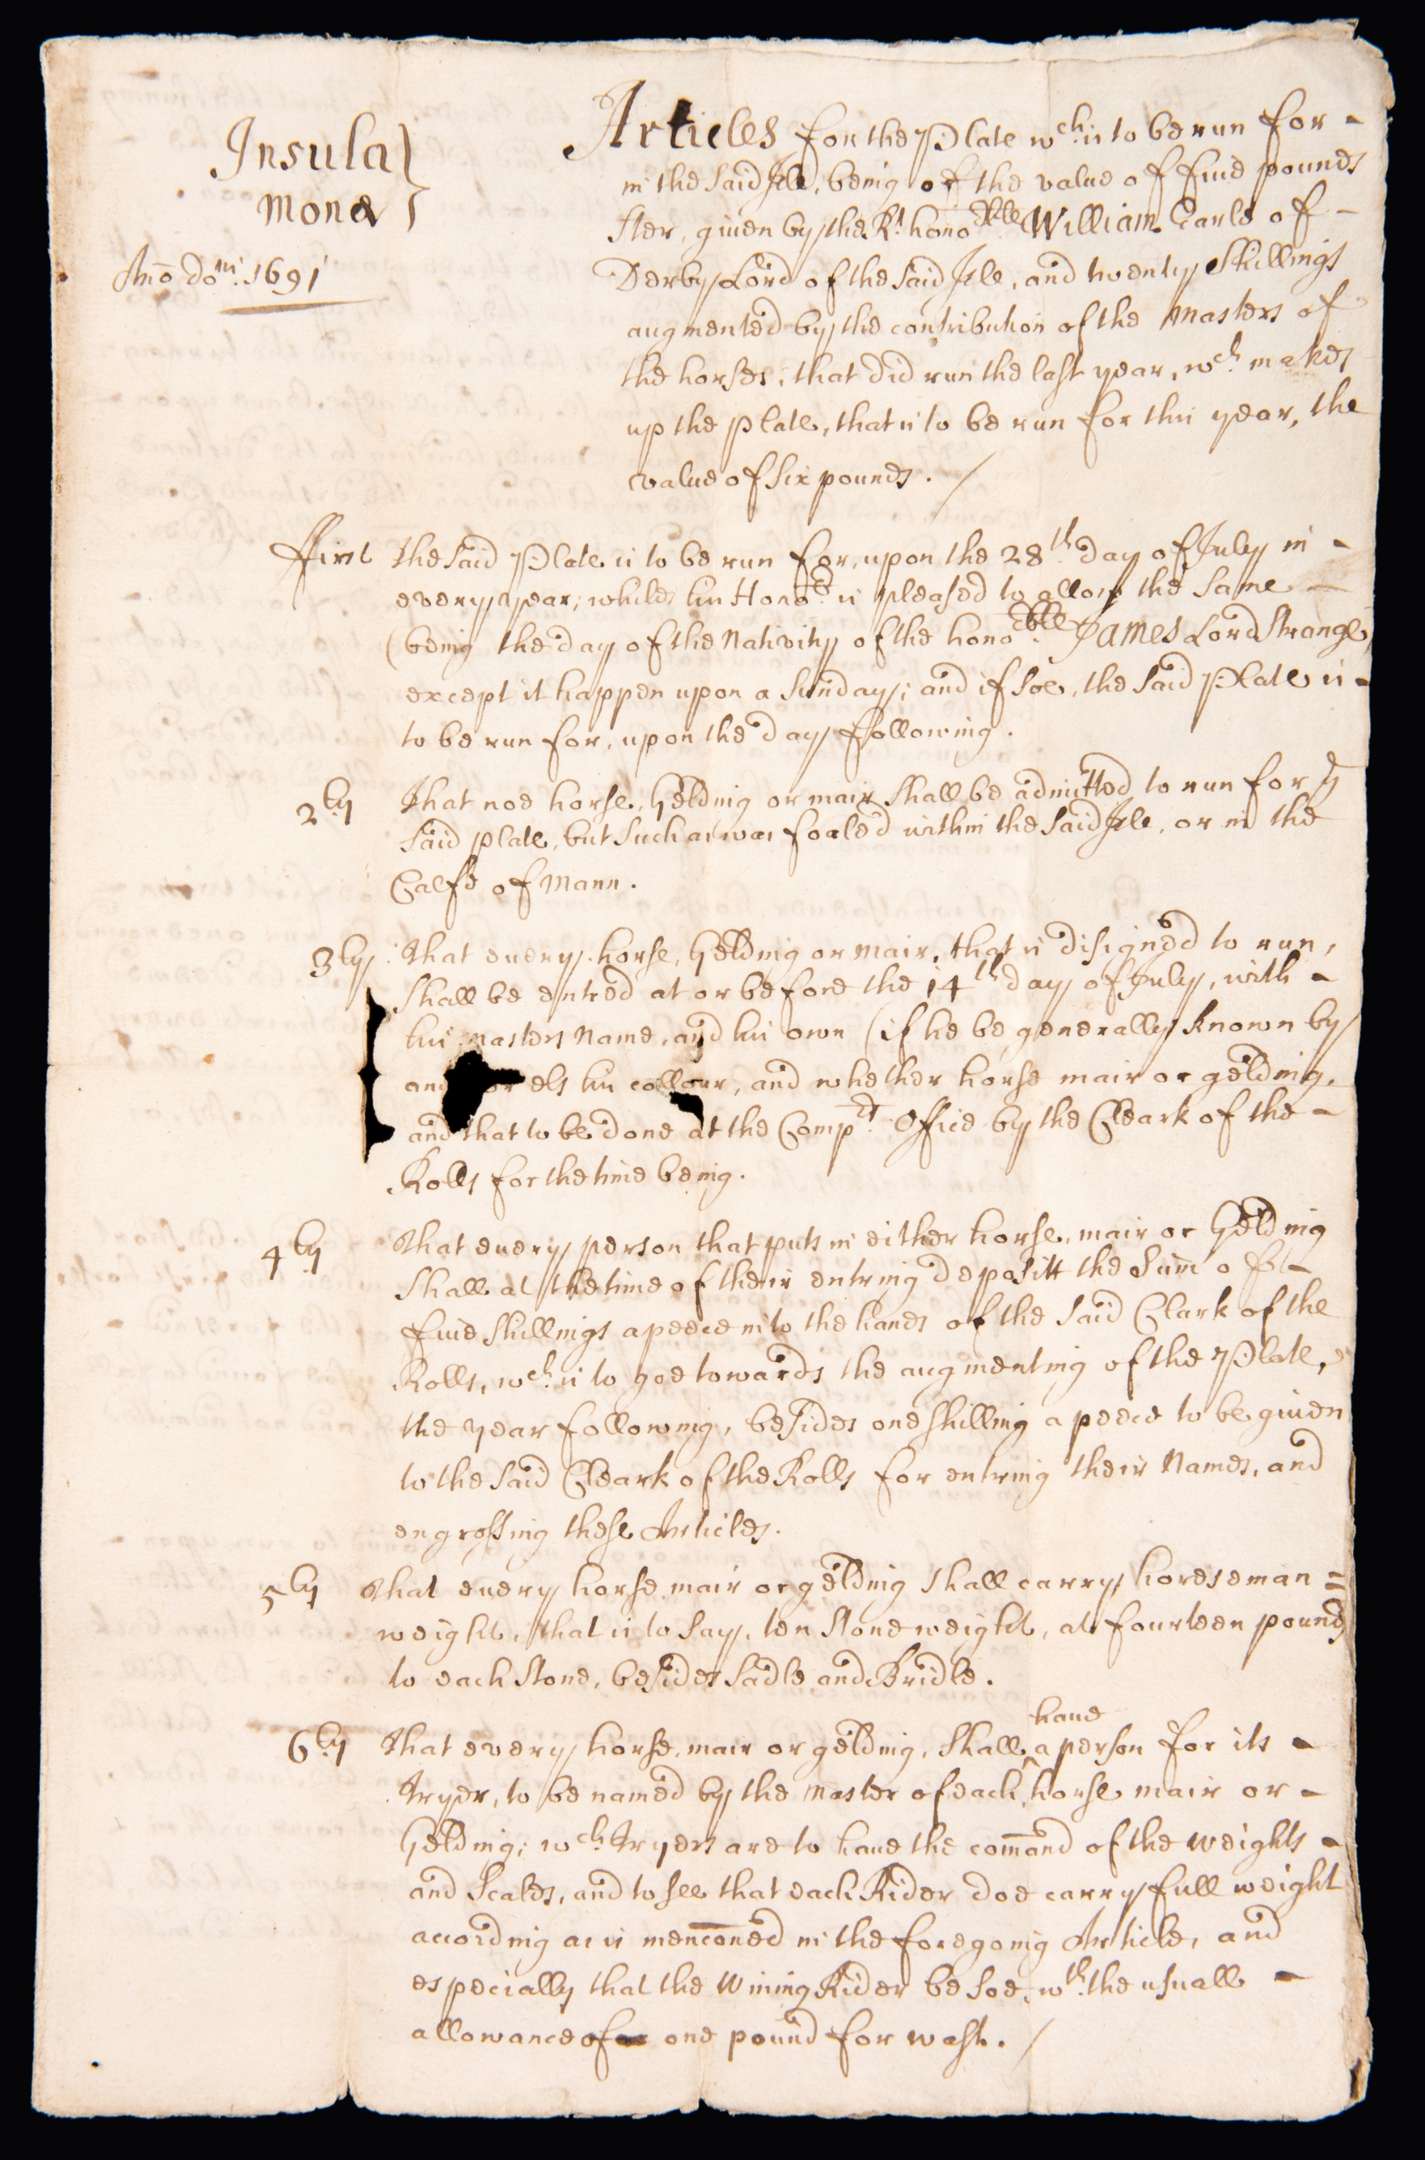 Insula
Monæ
Año Doni. 1691
Articles for the Plate wch. is to be run for -
in the said Isle, being of the value of fiue pounds
ster, giuen by the Rt. honoble William Earle of -
Derby Lord of the said Isle, and twenty shillings
augmented by the contribution of the Masters of
the horses, that did run the last year, wch. makes
up the plate, that is to be run for this year, the
value of six pounds. /
ffirst the said Plate is to be run for, upon the 28th day of July in -
every year; whiles his Honor. is pleased to allow the same -
(being the day of the Nativity of the honoble. James Lord Strange)
except it happen upon a sunday; and if soe, the said Plate is -
to be run for, upon the day following.
2ly That noe horse, Gelding or mair shall be admitted to run for ye
said plate, but such as was foaled within the said Isle, or in the
Calfe of Mann.
3ly That euery horse, Gelding or mair, that is disigned to run,
shall be entred at or before the 14th day of July, with -
his masters Name, and his own (if he be generally known by
one) or els his collour, and whether horse mair or gelding,
and that to be done at the Compt. Office by the Cleark of the -
Rolls for the time being.
4ly That euery person that puts in either horse, mair or Gelding
shall at the time of their entring depositt the sum of -
fiue shillings apeece into the hands of the said Clark of the
Rolls, wch. is to goe towards the augmenting of the Plate,
the year following, besides one shilling a peece to be giuen
to the said Cleark of the Rolls for entring their Names, and
engrossing these Articles.
5ly That euery horse mair or gelding shall carry horseman =
weight, that is to say, ten stone weight, at fourteen pounds
to each stone, besides sadle and Bridle.
have
6ly That every horse, mair or gelding, shall ^ a person for its -
Tryer, to be named by the Master of each horse mair or -
Gelding; wch Tryers are to haue the comand of the weights -
and Scales, and to see that each Rider doe carry full weight
according as is menconed in the foregoing Article, and
especially that the wining Rider be soe, wth. the usuall -
allowance of one pound for wast. /